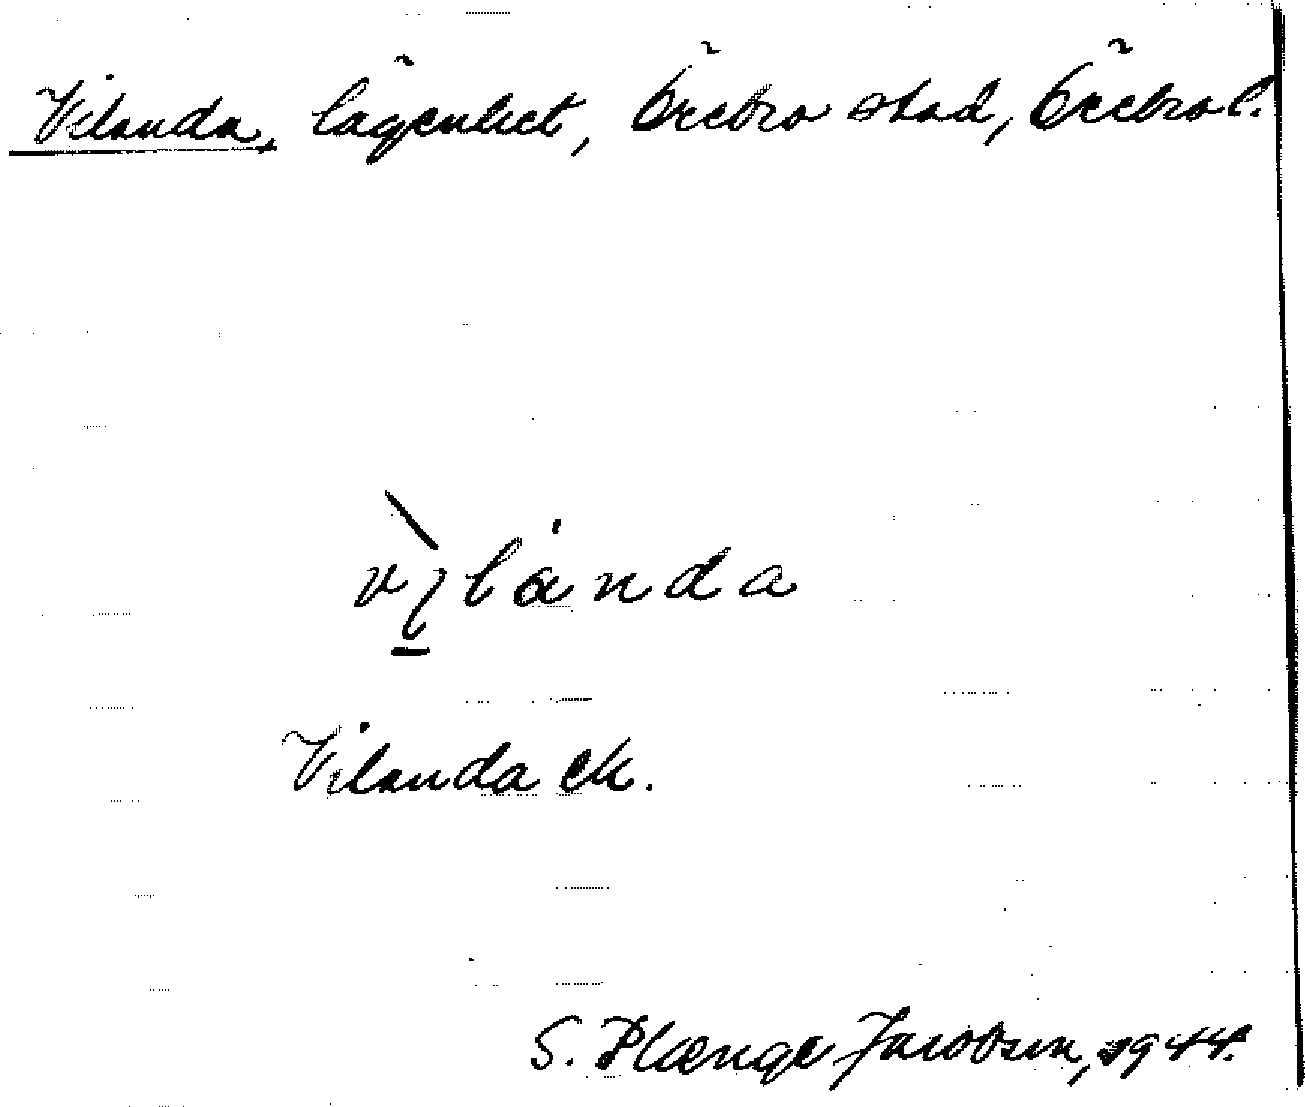 Vilanda, lägenhet, Örebro stad, Örebro l.
vìlánda
Vilanda ek.
S. Plænge Jacobson, 1944.